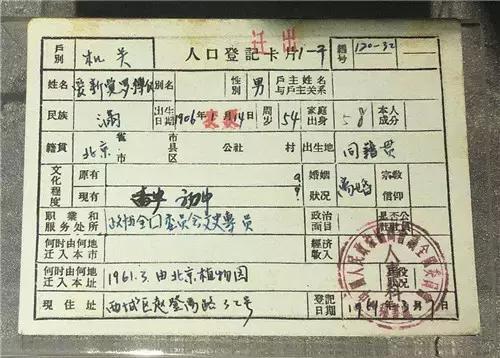 迁出
戶別 机关 人口登記卡片 1-子 編号 120-32
姓名 爱新觉罗溥仪 別名 性別 男 戶主姓名与戶主关系
民族 滿 出生日期 1906年1月14日 周岁 54 家庭出身 本人成分
籍貫 北京 省市 市县区 公社 村 出生地 同籍贯
文化程度 原有 婚姻狀況 离婚 宗教信仰
現有 初中
职业和服务处所 政协全口委员会文史専員 政治面目 是否公社社員
何时由何地迁入本市 經济收入
何时由何地迁入本址 1961.3.由北京植物园
現住址 西城区赵登禹路32号 登記日期